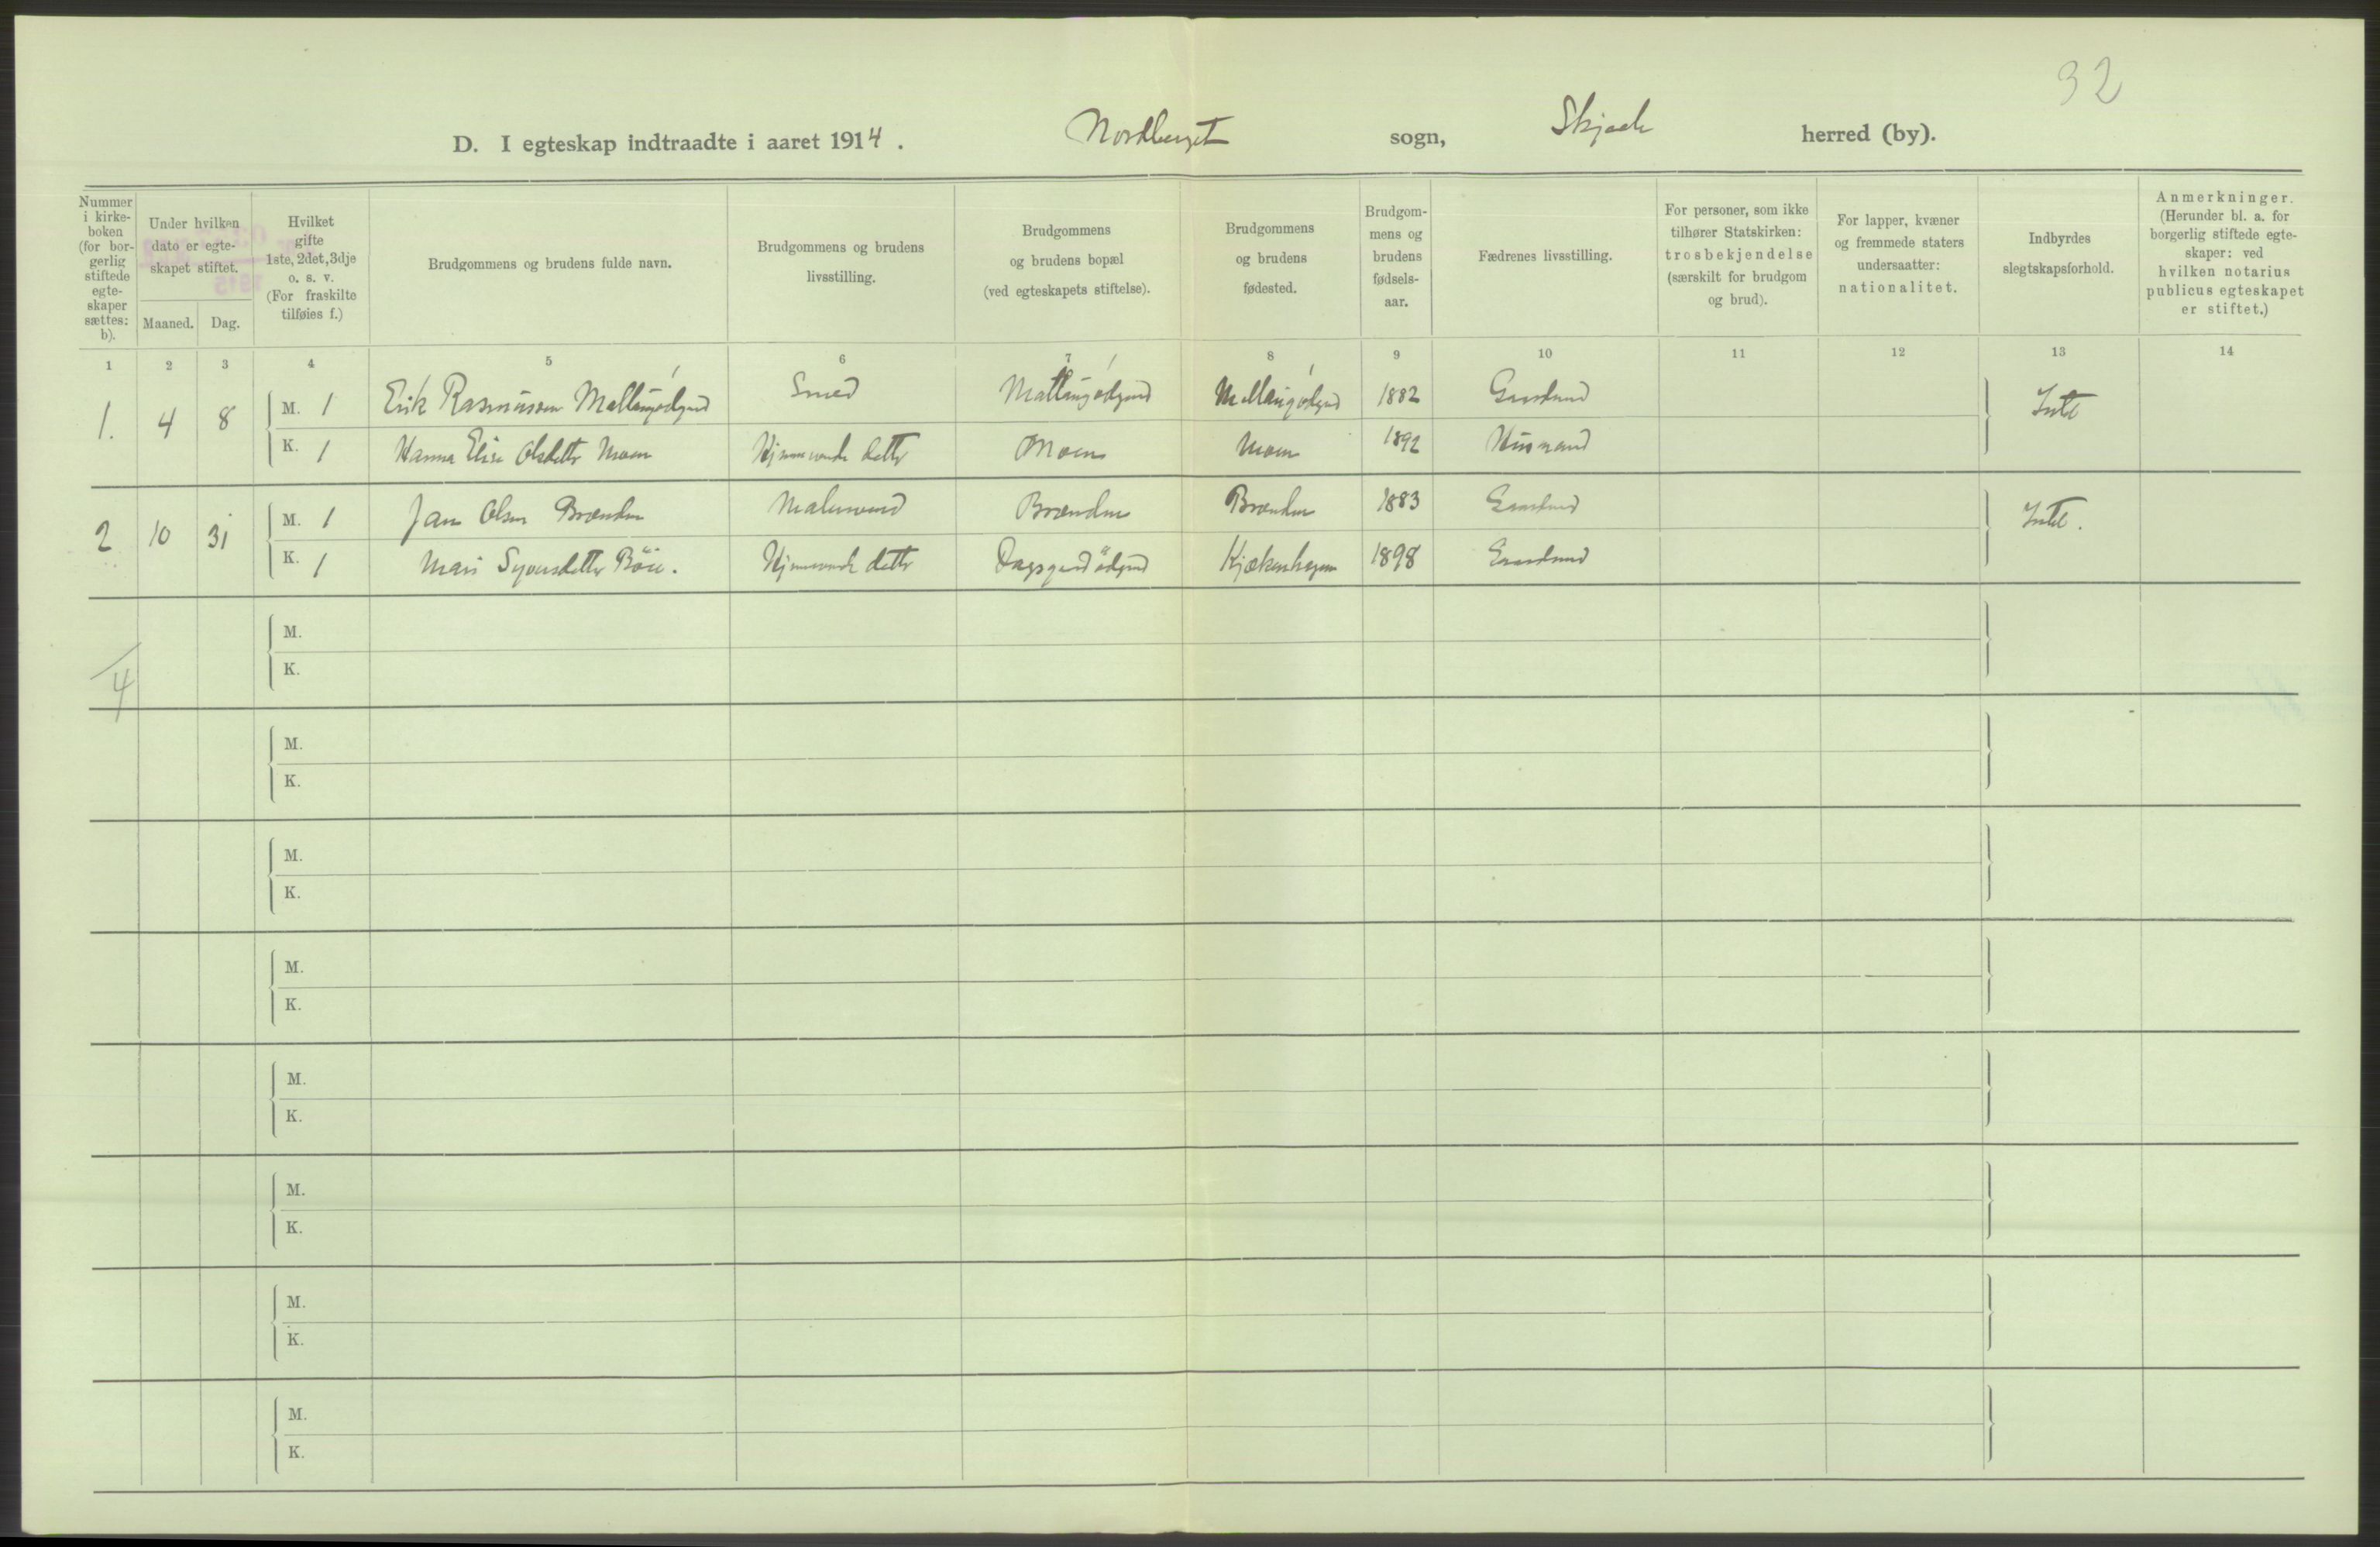 32
D. I egteskap indtraadte i aaret 1914. Nordberget sogn, Skjaak herred (by).
Nummer
i kirke-
boken
(for bor-
gerlig
stiftede
egte-
skaper
sættes:
b).
Under hvilken
dato er egte-
skapet stiftet.
Maaned. Dag.
Hvilket
gifte
1ste, 2det, 3dje
o. s. v.
(For fraskilte
tilføies f.)
Brudgommens og brudens fulde navn.
Brudgommens og brudens
livsstilling.
Brudgommens
og brudens bopæl
(ved egteskapets stiftelse).
Brudgommens
og brudens
fødested.
Brudgom-
mens og
brudens
fødsels-
aar.
Fædrenes livsstilling.
For personer, som ikke
tilhører Statskirken:
trosbekjendelse
(særskilt for brudgom
og brud).
For lapper, kvæner
og fremmede staters
undersaatter:
nationalitet.
Indbyrdes
slegtskapsforhold.
Anmerkninger.
(Herunder bl. a. for
borgerlig stiftede egte-
skaper: ved
hvilken notarius
publicus egteskapet
er stiftet.)
1 2 3 4 5 6 7 8 9 10 11 12 13 14
1. 4 8 M. 1 Erik Rasmussen Smed 1882 Gaardmand Intet
K. 1 Hanna Elise Olsdatter Moen Hjemmev. datter Moen Moen 1892 Husmand
2 10 31 M. 1 Jan Olsen Brænden Malersvend Brænden Brænden 1883 Gaardmand Intet.
K. 1 Mari Syversdatter Böie. Hjemmev. datter Kjøkenhagen 1898 Gaardmand
M.
K.
4
M.
K.
M.
K.
M.
K.
M.
K.
M.
K.
M.
K.
M.
K.